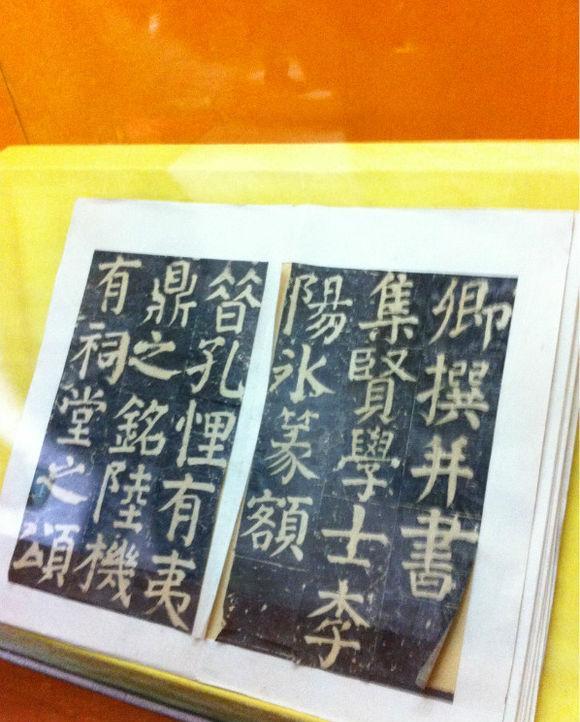 卿撰并書
集賢學士李
陽冰篆額
㫺孔悝有夷
鼎之銘陸機
有祠堂之頌